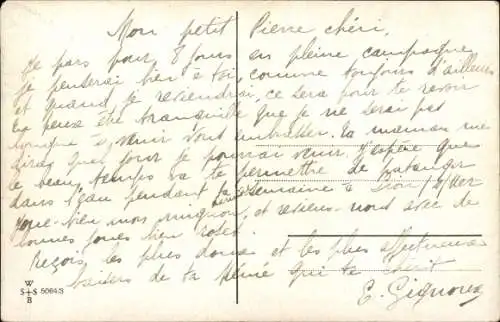 Mon petit Pierre chéri,
Je pars pour 8 jours en pleine campagne
je penserai bien à toi, comme toujours d'ailleurs
et quand je reviendrai, ce sera pour te revoir
tu peux être tranquille que je ne serai pas
longue à venir vous embrasser. Ta maman me
dira quel jour je pourrai venir. J'espère que
le beau temps va te permettre de patauger
dans l'eau pendant la semaine à
Joue bien mon mignon, et reviens-nous avec de
bonnes joues bien roses.
Reçois les plus doux et les plus affectueux
baisers de ta qui te chérit
E. Gignoux
W
S+S 5064/3
B